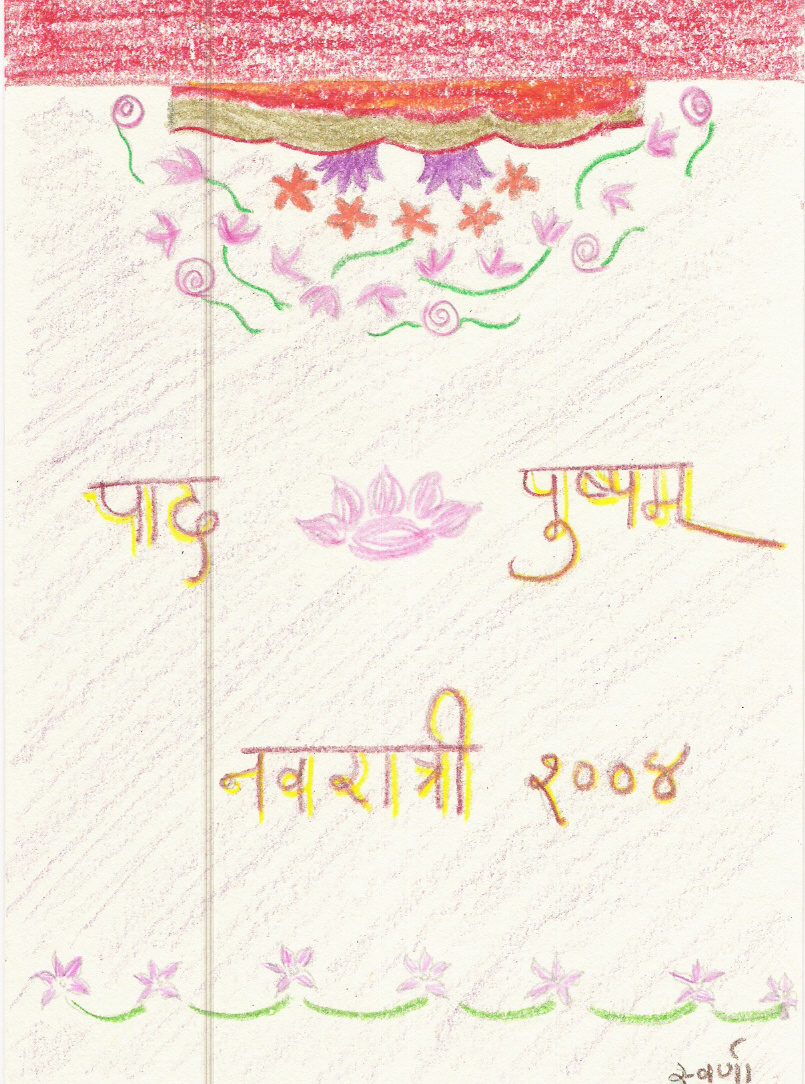 पाद पुष्पम्
नवरात्री २००४
स्वर्णा